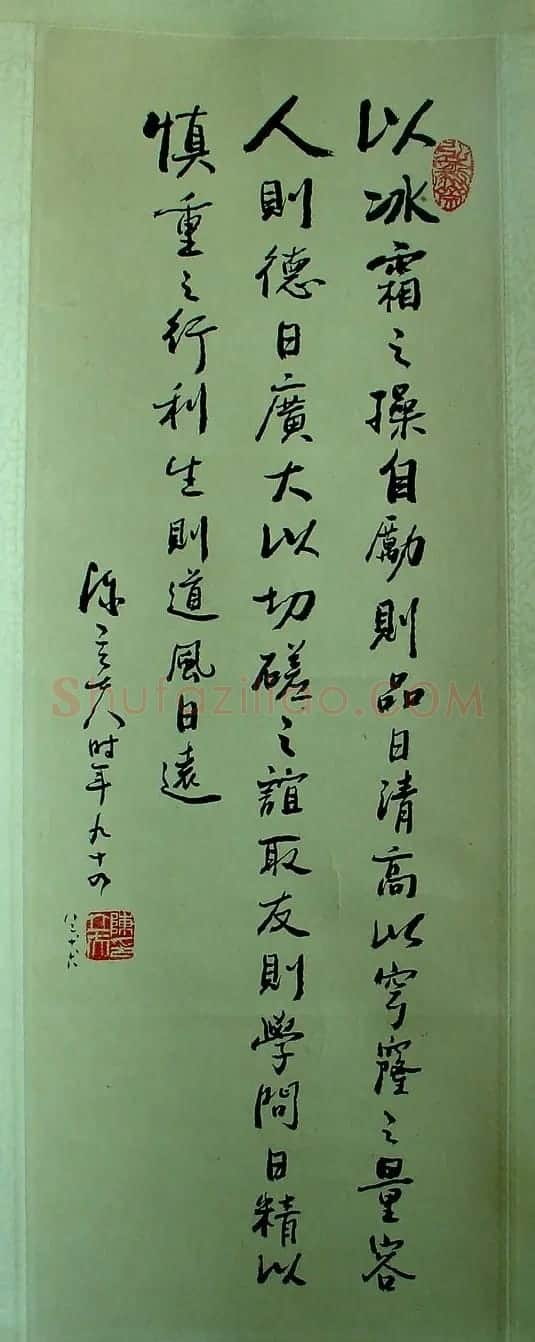 以冰霜之操自勵則品日清高以穹窿之量容
人則德日廣大以切磋之誼取友則學問日精以
慎重之行利生則道風日遠
陳立夫时年九十四
Shufaziliao.COM